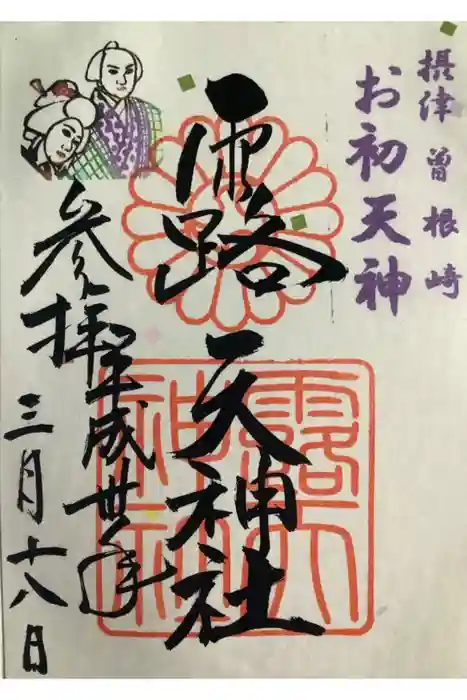 摂津 曽根崎
お初天神
露天神社
参拝 平成卅年
三月十八日
露天神社